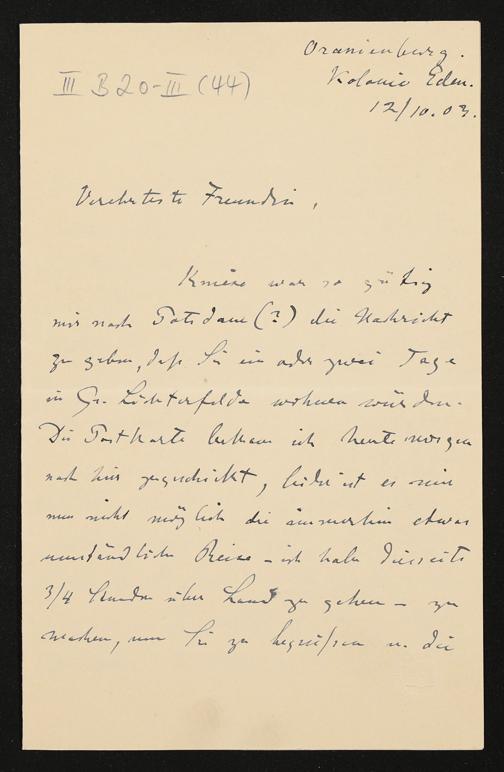 Oranienburg.
III B 20-III (44)
Kolonie Eden.
12/10.03.
Verehrteste Freundin,
war so gütig
mir nach Potsdam (?) die Nachricht
zu geben, daß Sie ein oder zwei Tage
in Gr. Lichterfelde wohnen würden.
Die Postkarte bekam ich heute morgen
nach hier zugeschickt, leider ist es mir
nun nicht möglich die immerhin etwas
umständliche Reise – ich habe diesseits
3/4 Stunden über Land zu gehen – zu
machen, um Sie zu begrüßen u. die